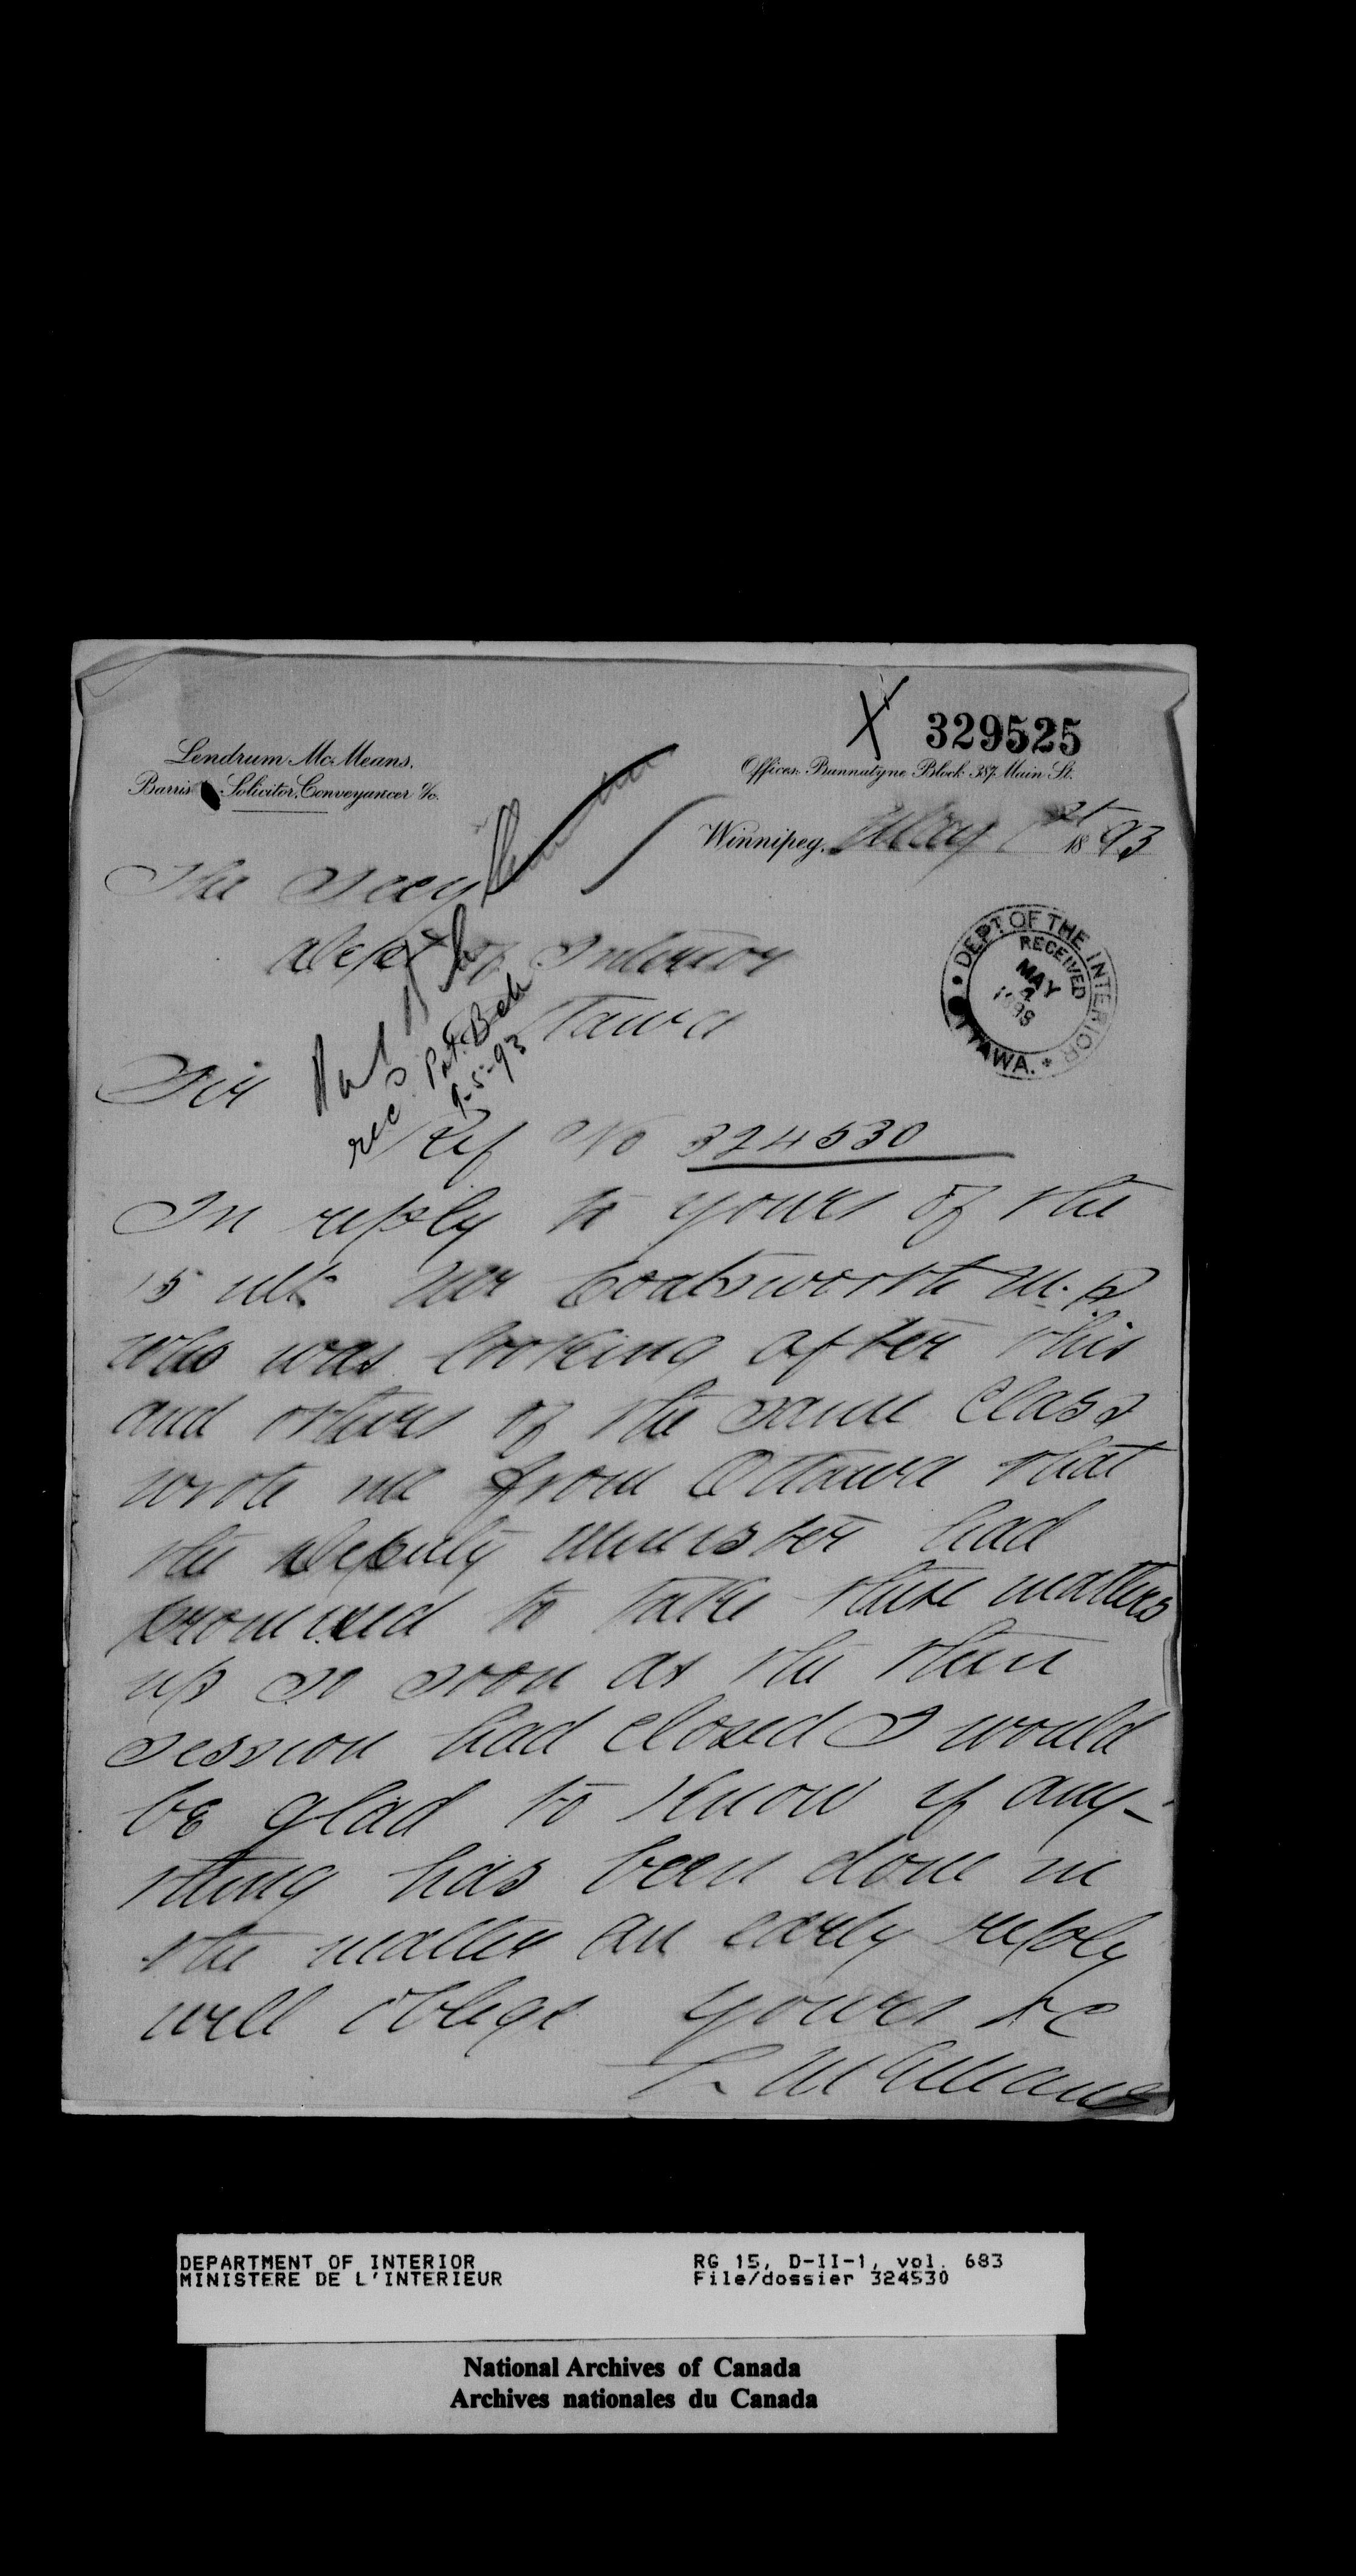 329525
Lendrum McMeans.
Barris Solicitor, Conveyancer &c.
Offices. Bannatyne Block 387 Main St.
Winnipeg, May 1st 1893
The Secy
Dept of Interior
Ottawa
DEPT. OF THE INTERIOR
RECEIVED
MAY
OTTAWA.
rec. Pat. Bch
9-5-93
Sir
Ref No 324530
In reply to yours of the
15 ult Mr Coatsworth M.P.
who was looking after this
and others of the same class
wrote me from Ottawa that
the Deputy Minister had
promised to take these matters
up so soon as the then
session had closed I would
be glad to know if any-
thing has been done in
the matter an early reply
will oblige yours &c
L. McMeans
DEPARTMENT OF INTERIOR
MINISTERE DE L'INTERIEUR
RG 15, D-II-1, vol. 683
File/dossier 324530
National Archives of Canada
Archives nationales du Canada